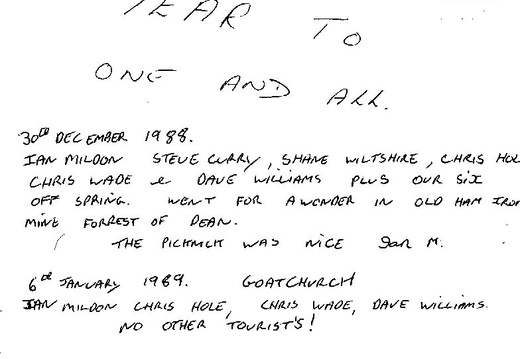 YEAR TO
ONE AND ALL.
30th DECEMBER 1988.
IAN MILDON STEVE CURRY, SHANE WILTSHIRE, CHRIS HOL
CHRIS WADE & DAVE WILLIAMS PLUS OUR SIX
OFF SPRING. WENT FOR A WONDER IN OLD HAM IRON
MINE FORREST OF DEAN.
THE PICKNICK WAS NICE Ian M.
6th JANUARY 1989. GOATCHURCH
IAN MILDON CHRIS HOLE, CHRIS WADE, DAVE WILLIAMS.
NO OTHER TOURIST'S!